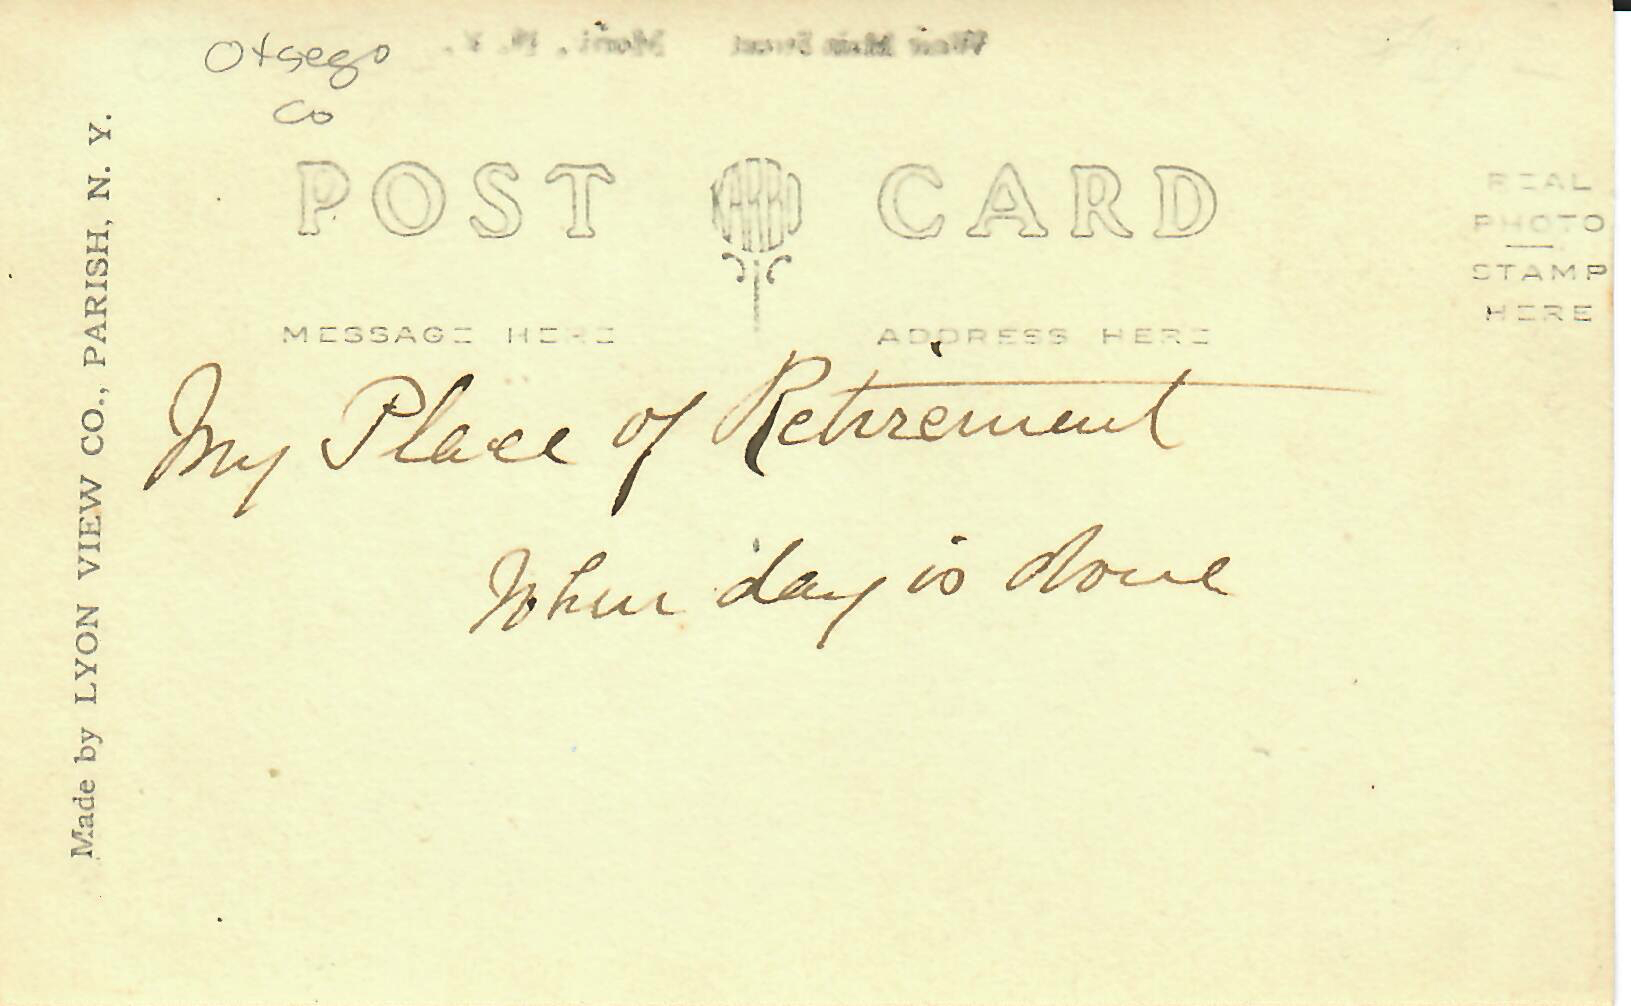 Otsego
Co
POST KARBO CARD
REAL
PHOTO
STAMP
HERE
MESSAGE HERE ADDRESS HERE
My Place of Retirement
When day is done
Made by LYON VIEW CO., PARISH, N. Y.